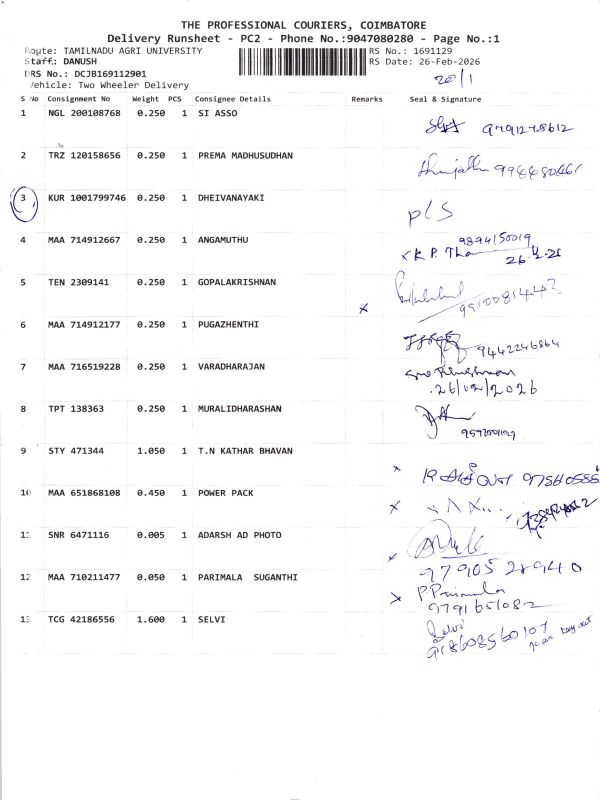 THE PROFESSIONAL COURIERS, COIMBATORE
Delivery Runsheet - PC2 - Phone No.:9047080280 - Page No.:1
Route: TAMILNADU AGRI UNIVERSITY
RS No.: 1691129
Staff: DANUSH
RS Date: 26-Feb-2026
DRS No.: DCJB169112901
Vehicle: Two Wheeler Delivery
S No Consignment No Weight PCS Consignee Details Remarks Seal & Signature
1 NGL 200108768 0.250 1 SI ASSO
9791278612
2 TRZ 120158656 0.250 1 PREMA MADHUSUDHAN
3 KUR 1001799746 0.250 1 DHEIVANAYAKI
PLS
4 MAA 714912667 0.250 1 ANGAMUTHU
9894150019
K P.
5 TEN 2309141 0.250 1 GOPALAKRISHNAN
6 MAA 714912177 0.250 1 PUGAZHENTHI
9442246864
7 MAA 716519228 0.250 1 VARADHARAJAN
26/02/2026
8 TPT 138363 0.250 1 MURALIDHARASHAN
9 STY 471344 1.050 1 T.N KATHAR BHAVAN
10 MAA 651868108 0.450 1 POWER PACK
11 SNR 6471116 0.005 1 ADARSH AD PHOTO
97905 28940
12 MAA 710211477 0.050 1 PARIMALA SUGANTHI
P. Parimala
9791651082
13 TCG 42186556 1.600 1 SELVI
Selvi
918608560107